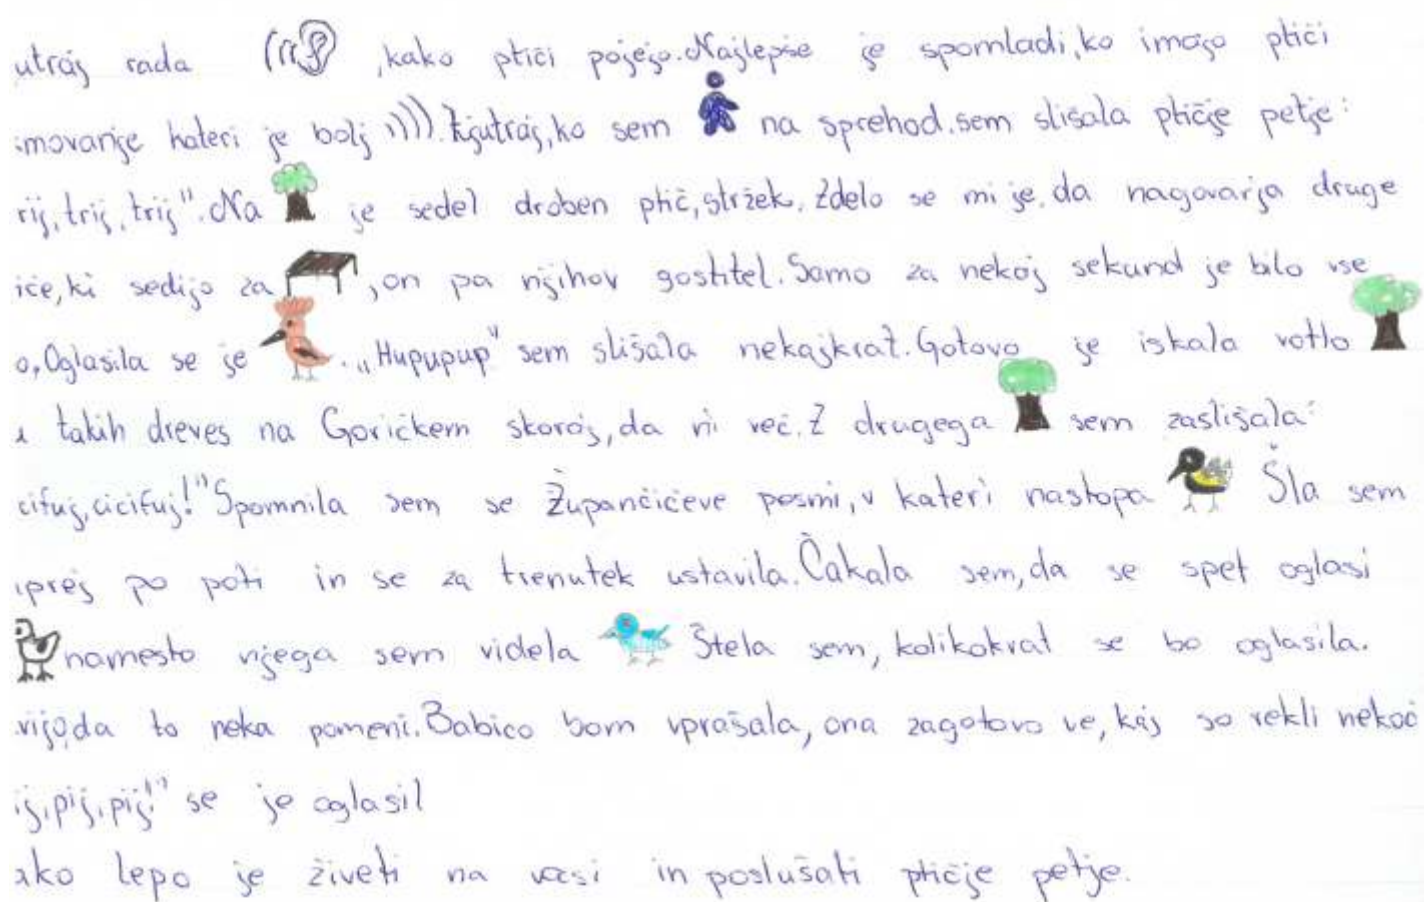 utraj rada , kako ptiči pojejo. Najlepše je spomladi, ko imajo ptiči
movanje kateri je bolj )))). Zjutraj, ko sem na sprehod. sem slišala ptičje petje:
rij, trij, trij". Na je sedel droben ptič, stržek. Zdelo se mi je, da nagovarja druge
iče, ki sedijo za , on pa njihov gostitel. Samo za nekaj sekund je bilo vse
o. Oglasila se je . "Hupupup" sem slišala nekajkrat. Gotovo je iskala votlo
takih dreves na Goričkem skoraj, da ni več. Z drugega sem zaslišala:
cifuj, cicifuj!" Spomnila sem se Župančičeve pesmi, v kateri nastopa Šla sem
prej po poti in se za trenutek ustavila. Čakala sem, da se spet oglasi
namesto njega sem videla Štela sem, kolikokrat se bo oglasila.
vijo, da to neka pomeni. Babico bom vprašala, ona zagotovo ve, kaj so rekli nekoč
ij, pij, pij!" se je oglasil
ako lepo je živeti na vasi in poslušati ptičje petje.